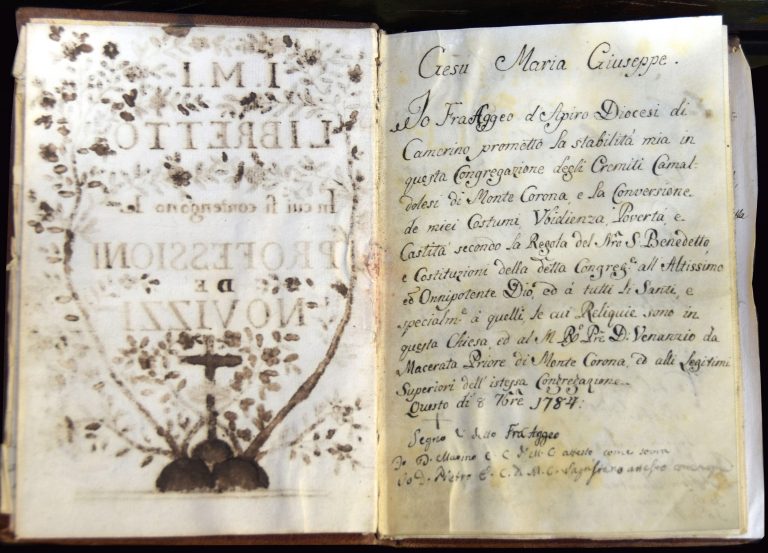 I M I
LIBRETTO
In cui si contengono le
PROFESSIONI
DE
NOVIZZI
Gesù Maria Giuseppe.
Io Fra Aggeo d'Apiro Diocesi di
Camerino prometto la stabilità mia in
questa Congregazione degli Eremiti Camal-
dolesi di Monte Corona, e la Conversione
de miei Costumi, Vbidienza, Povertà e
Castità secondo la Regola del Nrõ S. Benedetto,
e Costituzioni della detta Congreg.e all'Altissimo
ed Onnipotente Dio, ed à tutti li Santi, e
specialm.e à quelli, le cui Reliquie sono in
questa Chiesa, ed al M. R.º Pre D. Venanzio da
Macerata Priore di Monte Corona, ed alli Legitimi
Superiori dell'istessa Congregazione.
Questo dì 8 7bre 1784:
Segno di detto Fra Aggeo
Io D. Marino E. C. di M. C. attesto come sovra
Io D. Pietro E. C. D. M. C.